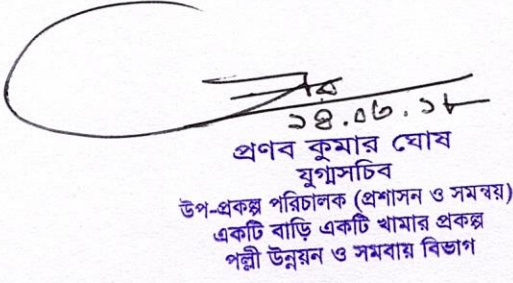 ১৪.০৬.১৮
প্রণব কুমার ঘোষ
যুগ্মসচিব
উপ-প্রকল্প পরিচালক (প্রশাসন ও সমন্বয়)
একটি বাড়ি একটি খামার প্রকল্প
পল্লী উন্নয়ন ও সমবায় বিভাগ